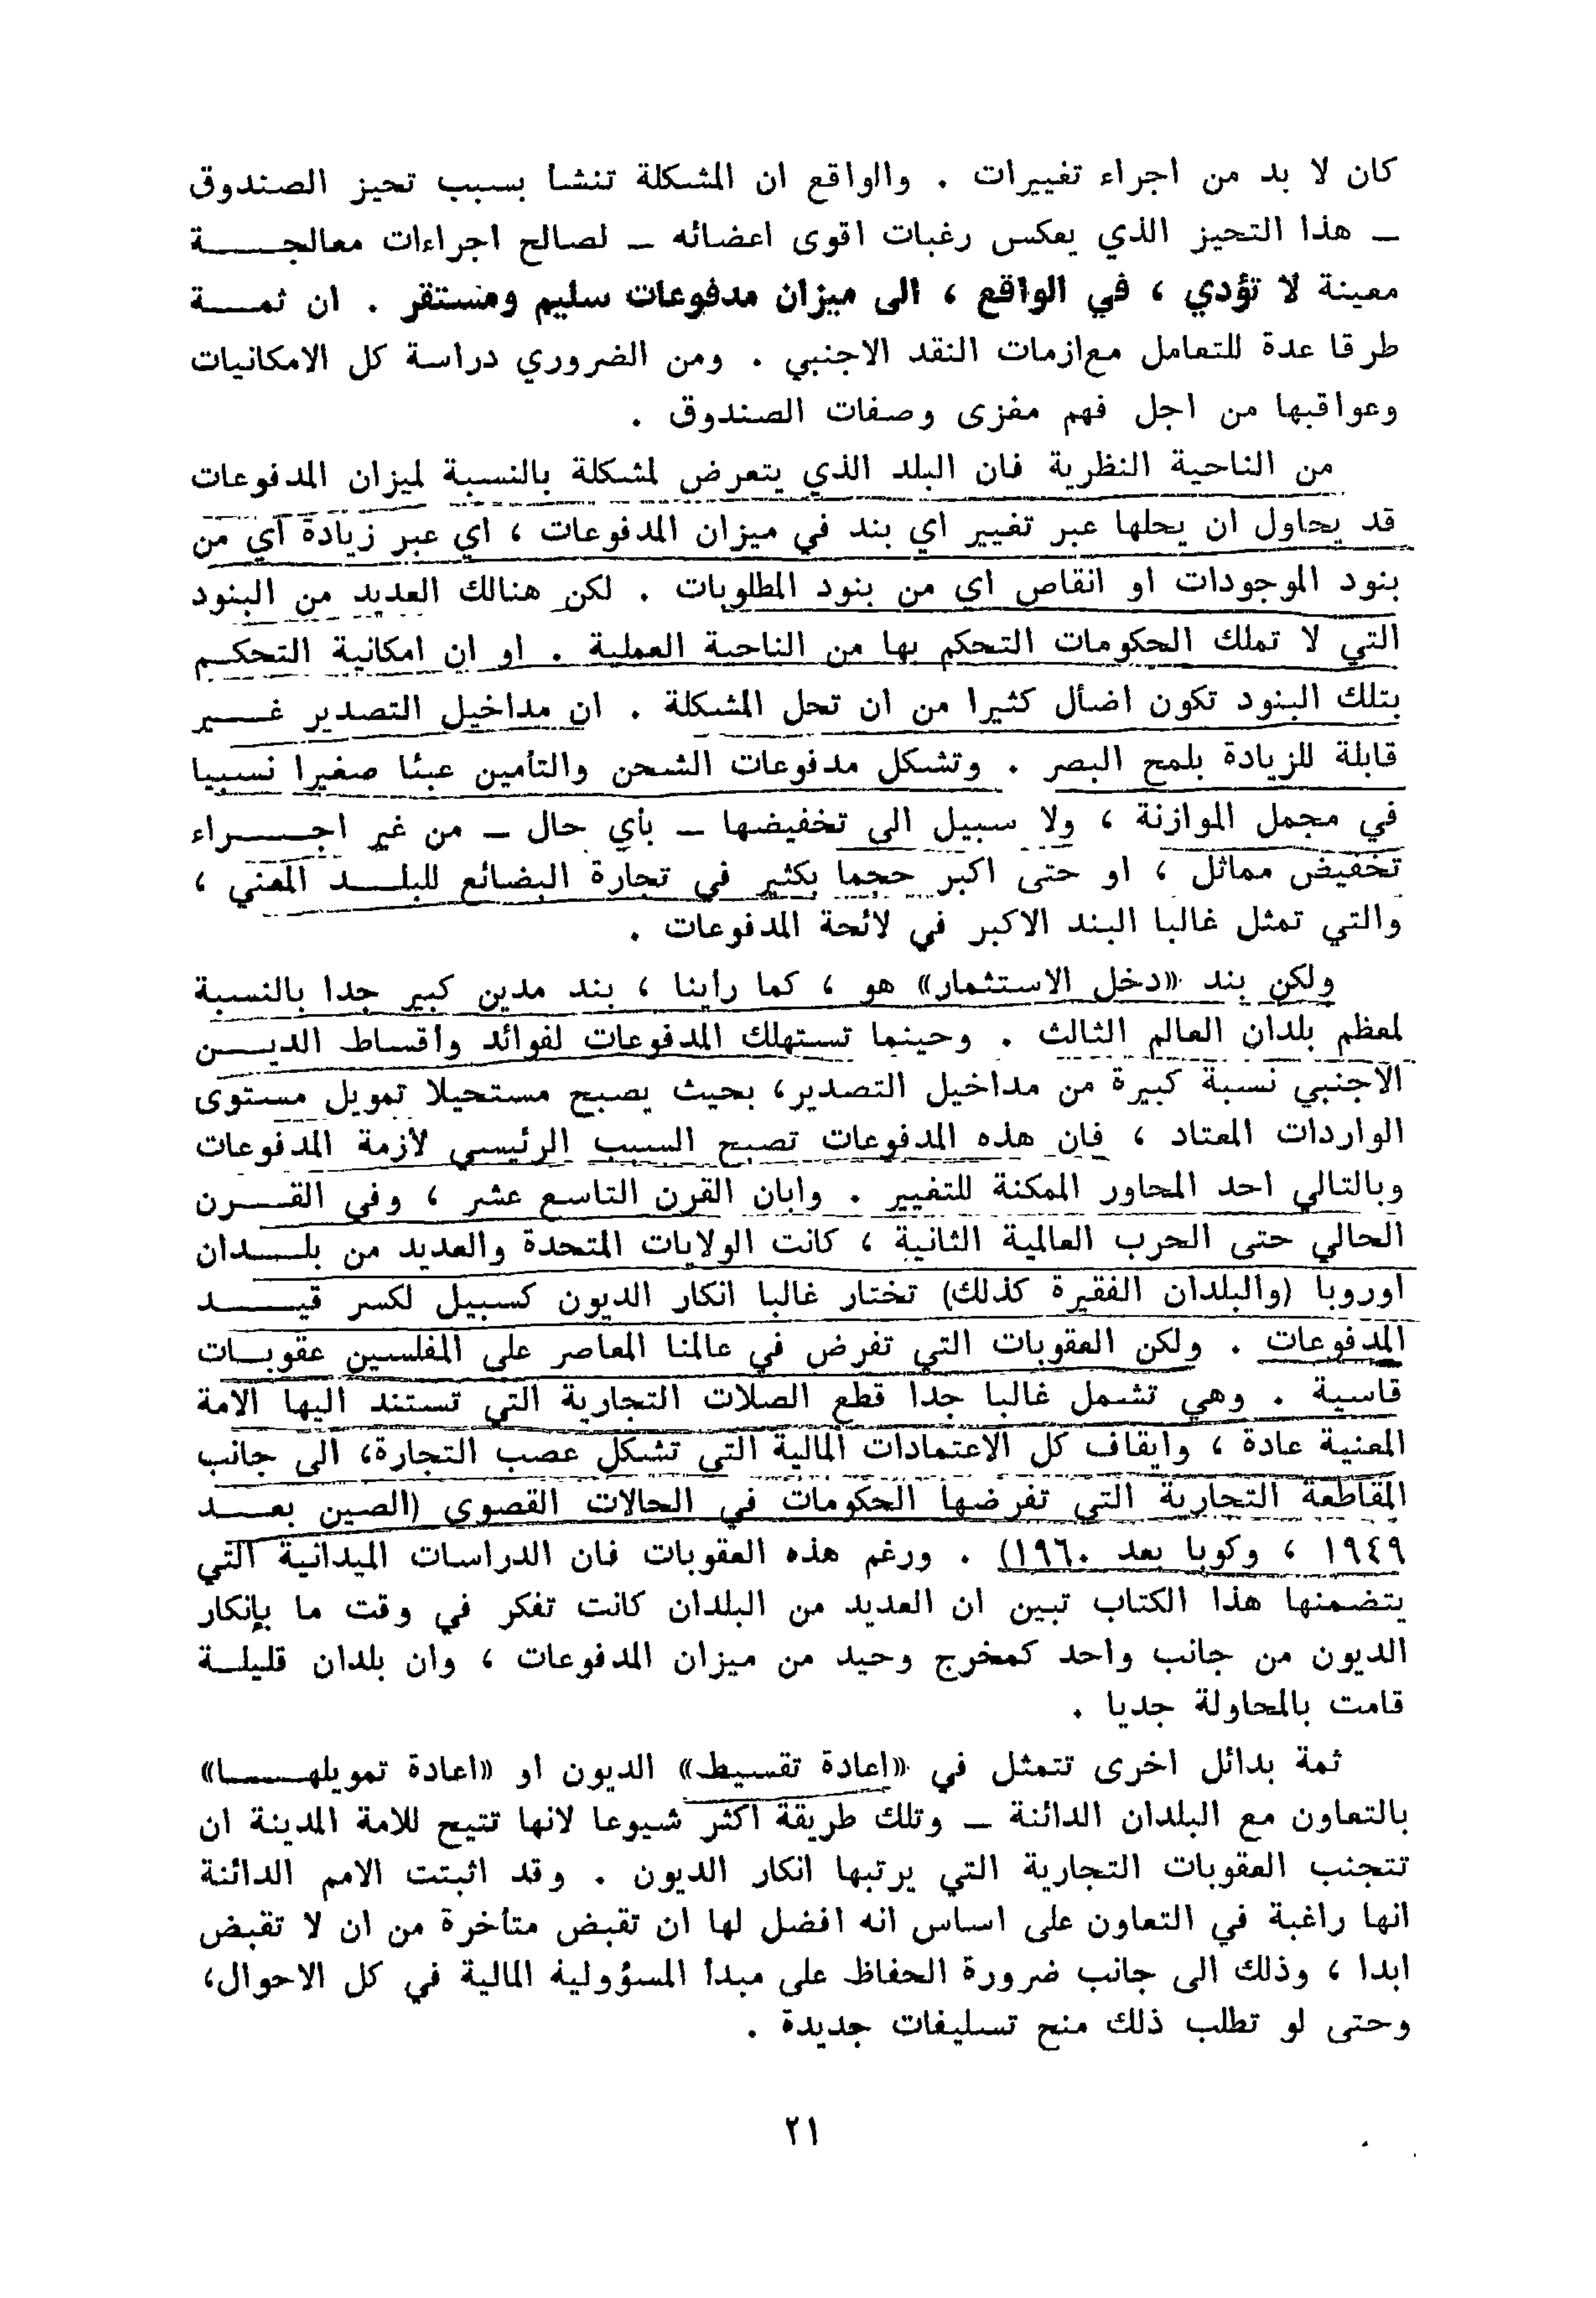 كان لا بد من اجراء تغييرات . والواقع ان المشكلة تنشأ بسبب تحيز الصندوق
ـ هذا التحيز الذي يعكس رغبات اقوى اعضائه ـ لصالح اجراءات معالجـــــــة
معينة لا تؤدي ، في الواقع ، الى ميزان مدفوعات سليم ومستقر . ان ثمـــــة
طرقا عدة للتعامل مع ازمات النقد الاجنبي . ومن الضروري دراسة كل الامكانيات
وعواقبها من اجل فهم مغزى وصفات الصندوق .
من الناحية النظرية فان البلد الذي يتعرض لمشكلة بالنسبة لميزان المدفوعات
قد يحاول ان يحلها عبر تغيير اي بند في ميزان المدفوعات ، اي عبر زيادة اي من
بنود الموجودات او انقاص اي من بنود المطلوبات . لكن هنالك العديد من البنود
التي لا تملك الحكومات التحكم بها من الناحية العملية . او ان امكانية التحكـــم
بتلك البنود تكون اضأل كثيرا من ان تحل المشكلة . ان مداخيل التصدير غـــــير
قابلة للزيادة بلمح البصر . وتشكل مدفوعات الشحن والتأمين عبئا صغيرا نسبيا
في مجمل الموازنة ، ولا سبيل الى تخفيضها ـ بأي حال ـ من غير اجـــــــراء
تخفيض مماثل ، او حتى اكبر حجما بكثير في تجارة البضائع للبلـــــد المعني ،
والتي تمثل غالبا البند الاكبر في لائحة المدفوعات .
ولكن بند «دخل الاستثمار» هو ، كما راينا ، بند مدين كبير جدا بالنسبة
لمعظم بلدان العالم الثالث . وحينما تستهلك المدفوعات لفوائد واقساط الديـــــن
الاجنبي نسبة كبيرة من مداخيل التصدير، بحيث يصبح مستحيلا تمويل مستوى
الواردات المعتاد ، فان هذه المدفوعات تصبح السبب الرئيسي لازمة المدفوعات
وبالتالي احد المحاور الممكنة للتغيير . وابان القرن التاسع عشر ، وفي القـــــرن
الحالي حتى الحرب العالمية الثانية ، كانت الولايات المتحدة والعديد من بلـــــدان
اوروبا (والبلدان الفقيرة كذلك) تختار غالبا انكار الديون كسبيل لكسر قيـــــــد
المدفوعات . ولكن العقوبات التي تفرض في عالمنا المعاصر على المفلسين عقوبـــات
قاسية . وهي تشمل غالبا جدا قطع الصلات التجارية التي تستند اليها الامة
المعنية عادة ، وايقاف كل الاعتمادات المالية التي تشكل عصب التجارة، الى جانب
المقاطعة التجارية التي تفرضها الحكومات في الحالات القصوى (الصين بعـــــد
١٩٤٩ ، وكوبا بعد ١٩٦٠) . ورغم هذه العقوبات فان الدراسات الميدانية التي
يتضمنها هذا الكتاب تبين ان العديد من البلدان كانت تفكر في وقت ما بإنكار
الديون من جانب واحد كمخرج وحيد من ميزان المدفوعات ، وان بلدان قليلـــة
قامت بالمحاولة جديا .
ثمة بدائل اخرى تتمثل في «اعادة تقسيط» الديون او «اعادة تمويلهـــــــا»
بالتعاون مع البلدان الدائنة ـ وتلك طريقة اكثر شيوعا لانها تتيح للامة المدينة ان
تتجنب العقوبات التجارية التي يرتبها انكار الديون . وقد اثبتت الامم الدائنة
انها راغبة في التعاون على اساس انه افضل لها ان تقبض متأخرة من ان لا تقبض
ابدا ، وذلك الى جانب ضرورة الحفاظ على مبدا المسؤولية المالية في كل الاحوال،
وحتى لو تطلب ذلك منح تسليفات جديدة .
٢١